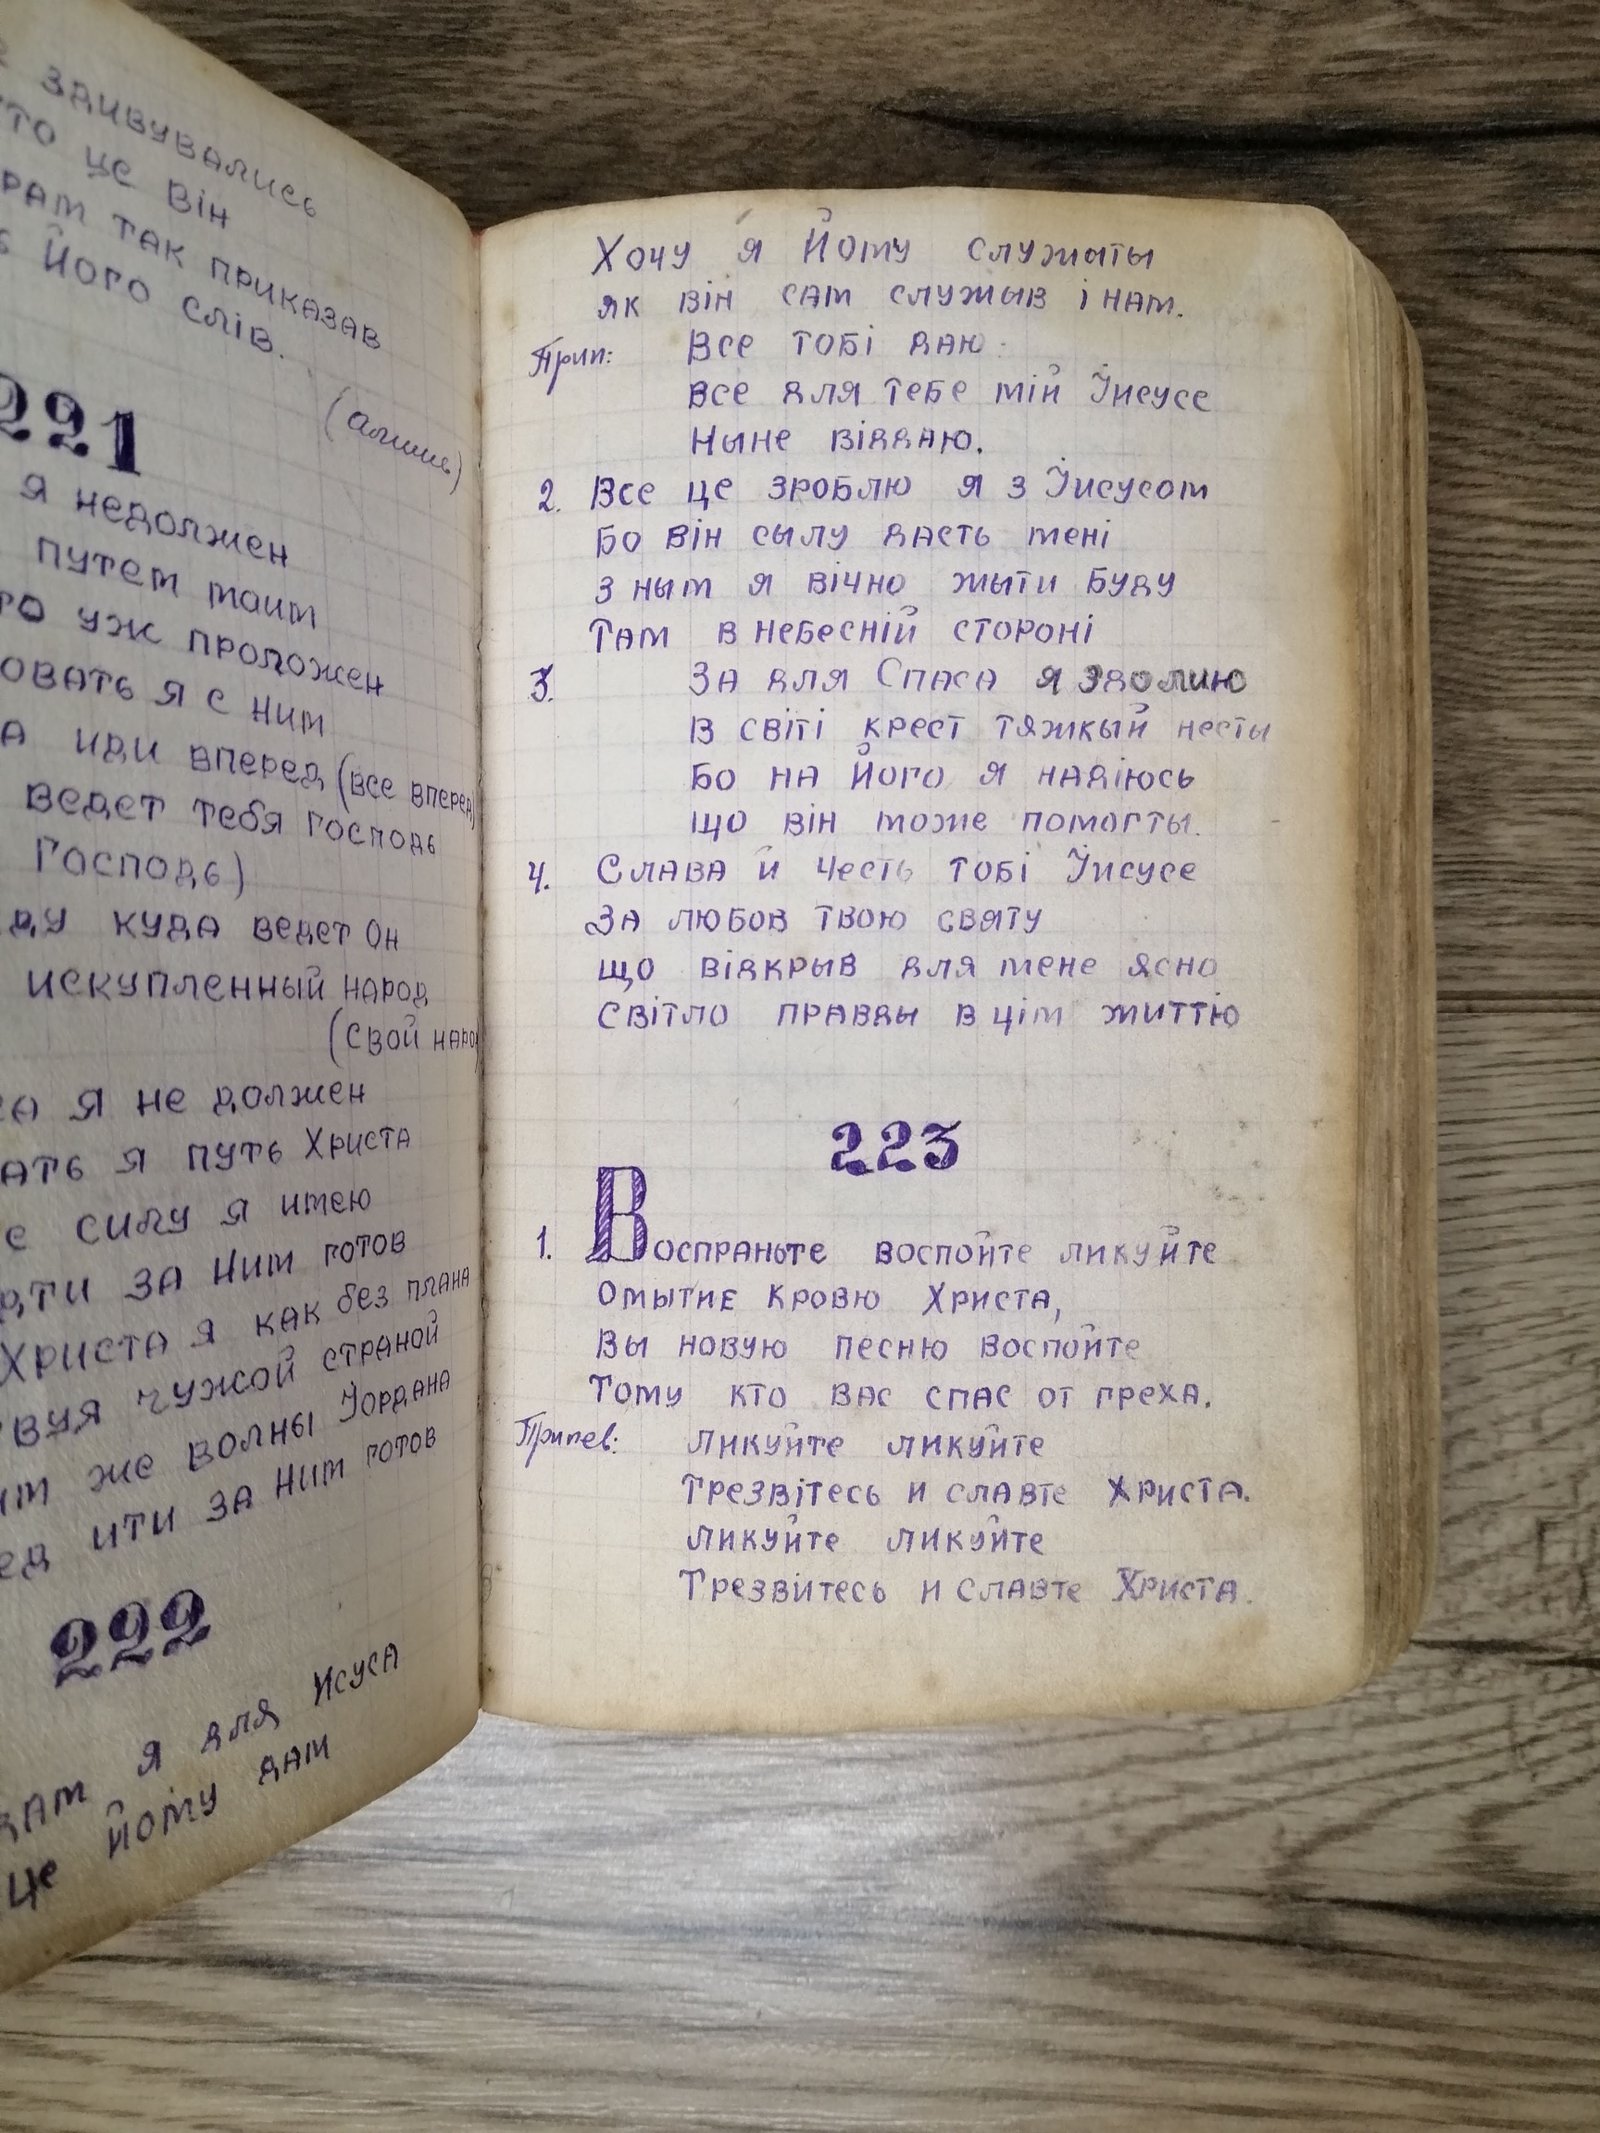 здивувались
це він
так приказав
Його слів.
221
(Алилис)
я недолжен
путем моим
уж проложен
я с ним
иди вперед (все вперед)
ведет тебя Господь
Господь)
куда ведет Он
искупленный народ
(свой народ
я не должен
я путь Христа
силу я имею
за Ним готов
Христа я как без плана
чужой страной
же волны Йордана
ити за Ним готов
222
я для Исуса
це Йому дам
Хочу я Йому служиты
як він сам служыв і нам.
Прип: Все тобі даю.
все для тебе мій Їисусе
Ныне віддаю.
2. Все це зроблю я з Їисусом
Бо він сылу дасть мені
з ным я вічно жыти буду
Там в небесній стороні
3. За для Спаса я зволию
в світі крест тяжкый несты
Бо на Його я надіюсь
що він може помогты.
4. Слава й честь тобі Їисусе
За любов твою святу
що відкрыв для мене ясно
світло правды в цім життю
223
1. Воспраньте воспойте ликуйте
Омытие кровю Христа,
Вы новую песню воспойте
Тому кто вас спас от греха.
Припев: ликуйте ликуйте
Трезвітесь и славте Христа.
ликуйте ликуйте
Трезвитесь и славте Христа.